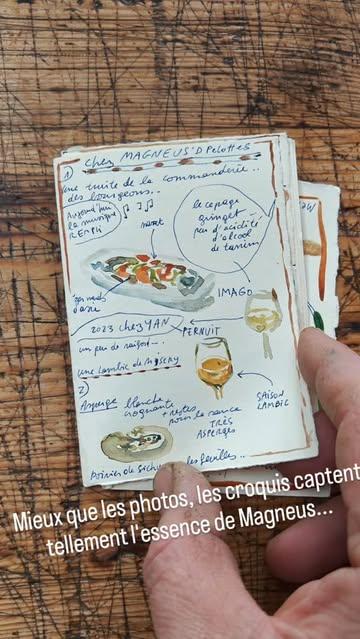 1) chez MAGNEUS'D Pelottes
une truite de la commanderie..
des bourgeons..
Aujourd'hui
la musique
REMPLI
navet
le cepage
gringet
peu d'acidité
d'alcool
de tannin
IMAGO
2023 chez YAN PERNUIT
un peu de raifort...
une lambic de
2)
SAISON
LAMBIC
Asperge blanche
croquante restes
pour la sauce
TRÈS
ASPERGES
les feuilles..
Mieux que les photos, les croquis captent
tellement l'essence de Magneus...